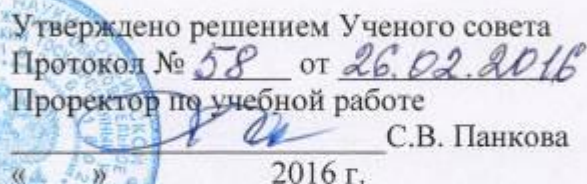 Утверждено решением Ученого совета
Протокол № 58 от 26.02.2016
Проректор по учебной работе
С.В. Панкова
« » 2016 г.